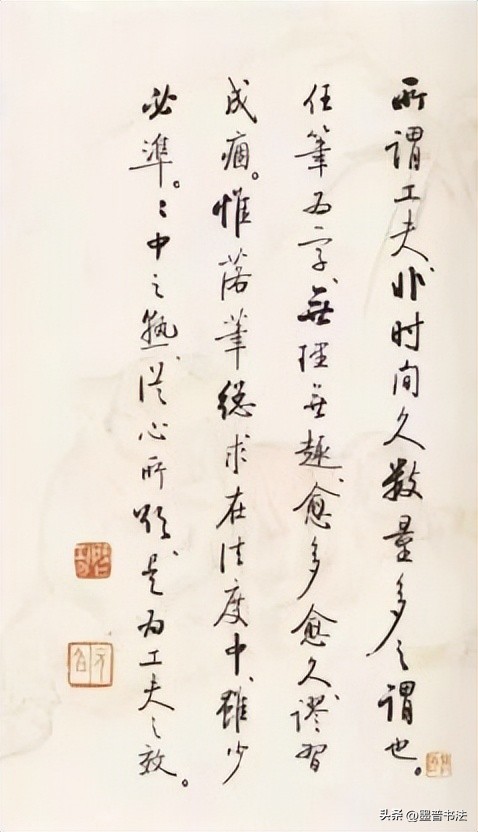 所谓工夫、非时间久数量多之谓也。
任筆为字、無理無趣、愈多愈久、謬習
成痼。惟落筆總求在法度中、雖少
必準。〻中之熟、從心所欲、是为工夫之效。
头条 @墨普书法